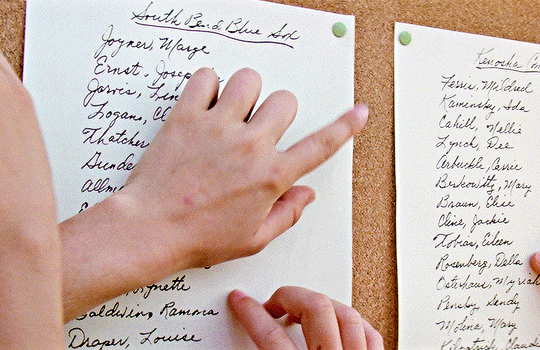 South Bend Blue Sox
Joyner, Marge
Ernst, Josep
Jarvis, Lin
Logans, Cl
Thatcher
Gunde
Allm
Baldwin, Ramona
Draper, Louise
Kenosha Com
Ferris, Mildred
Kaminsky, Ida
Cahill, Nellie
Lynch, Dee
Arbuckle, Carrie
Berkowitz, Mary
Braun, Elise
Cline, Jackie
Tobias, Eileen
Rosenberg, Della
Osterhaus, Myriah
Pensky, Sandy
Molina, Mary
Kilpatrick, Claude